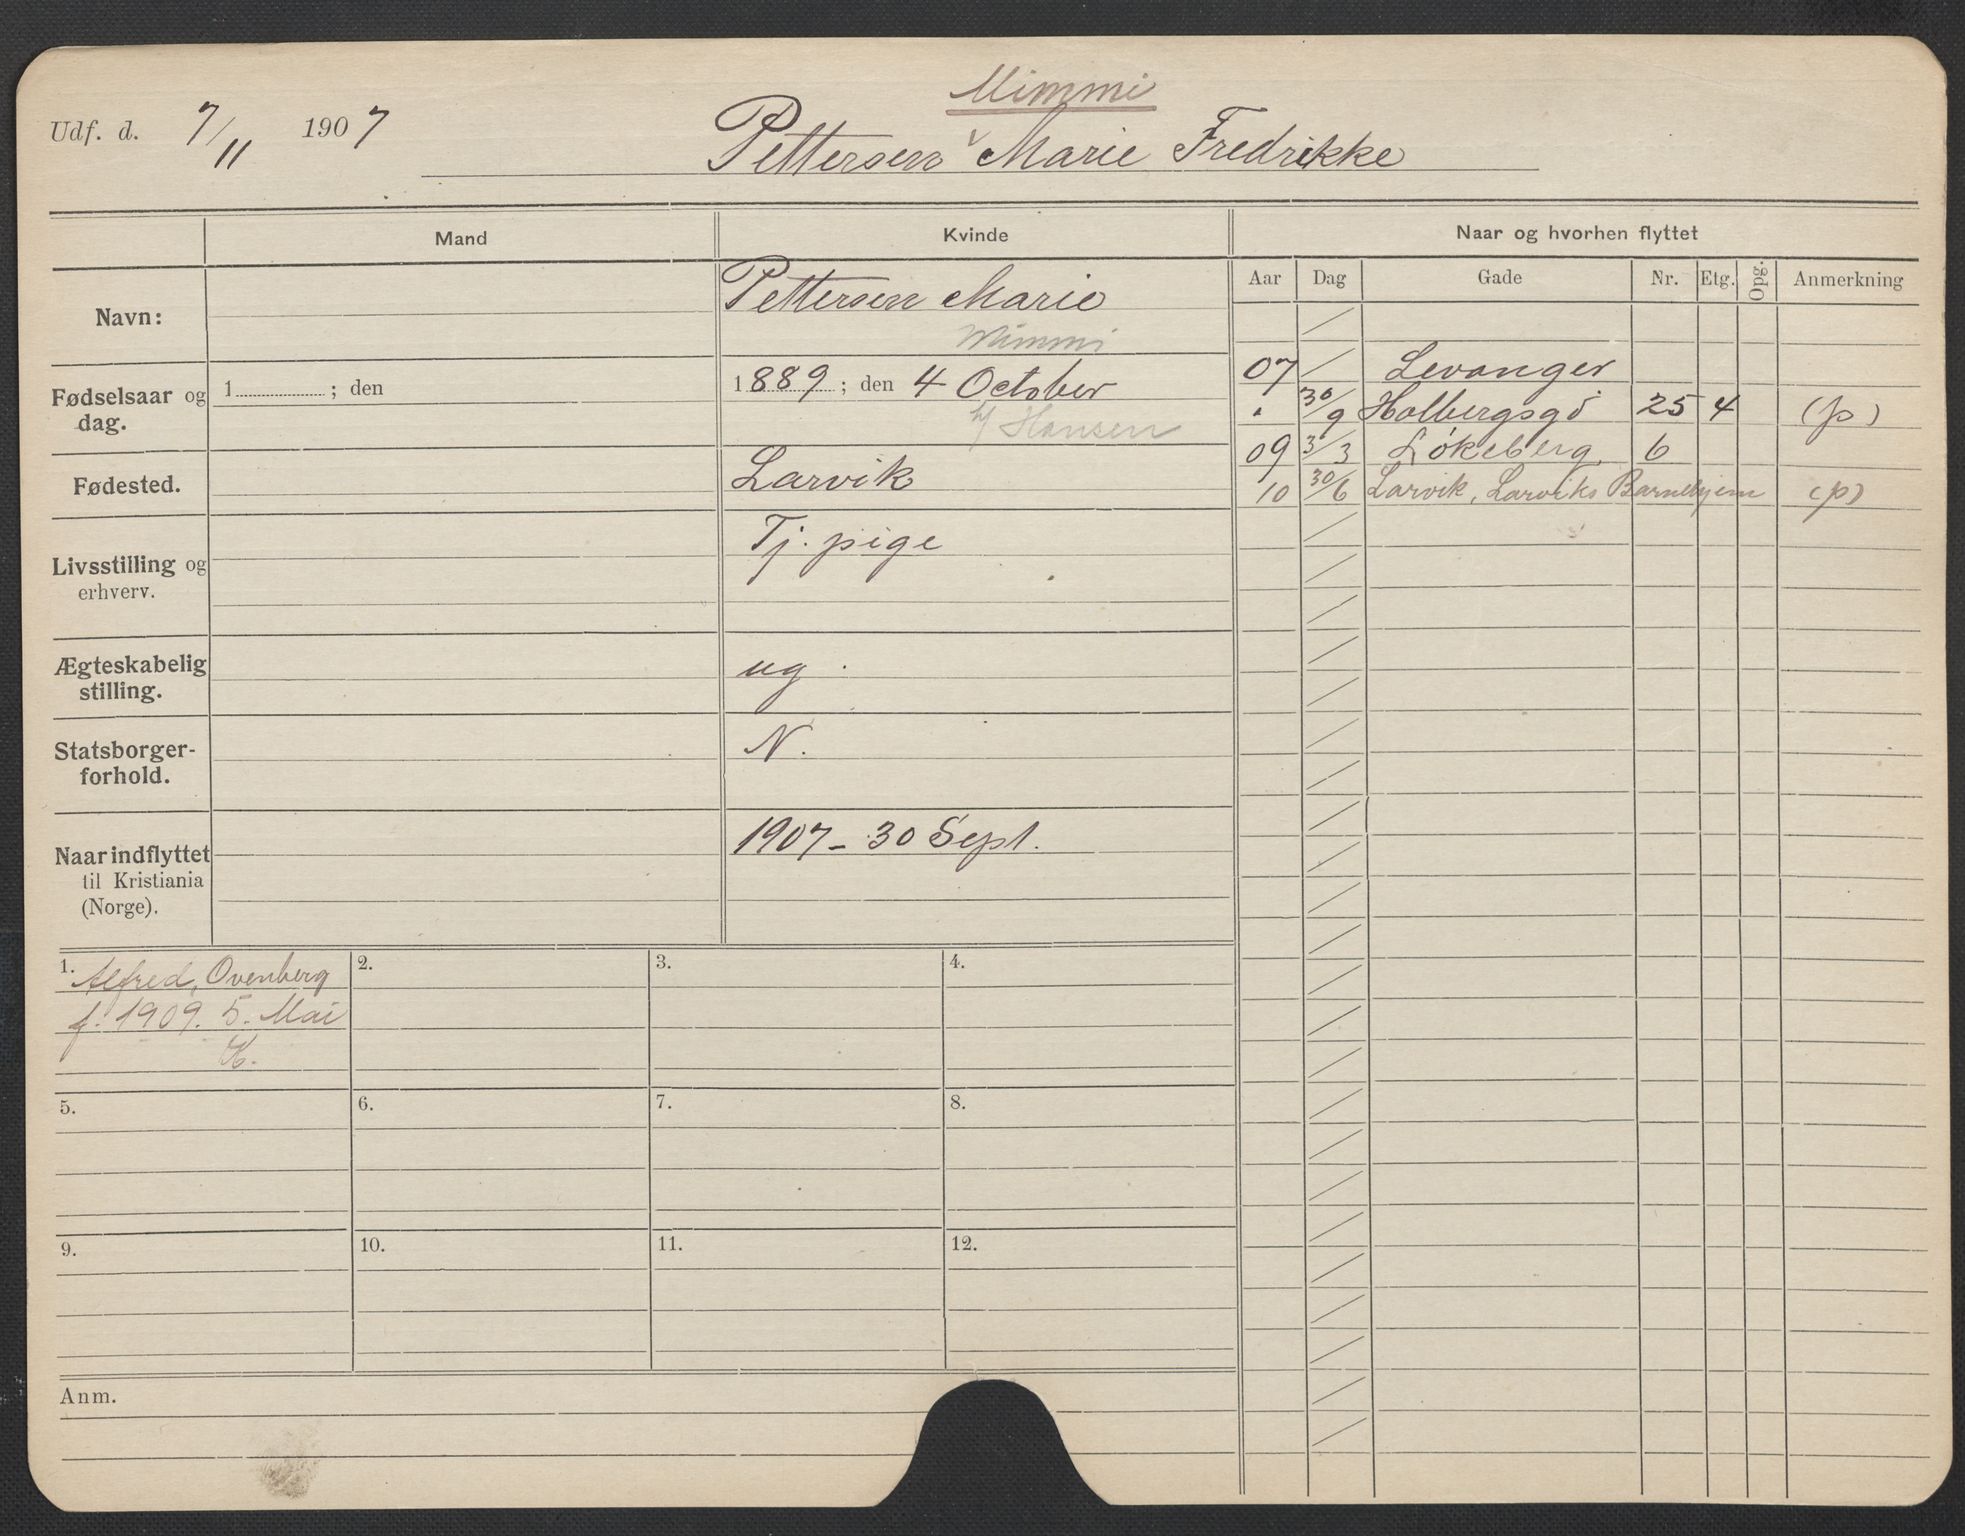 Mimmi
Udf. d. 7/11 1907 Pettersen Marie Fredrikke
Mand Kvinde Naar og hvorhen flyttet
Aar Dag Gade Nr. Etg. Opg. Anmerkning
Navn: Pettersen Marie
Mimmi
Fødselsaar og dag. 1 ; den 1889 ; den 4 October
Hansen
Fødested. Larvik
Livsstilling og erhverv. Tj. pige
Ægteskabelig stilling. ug.
Statsborgerforhold. N.
Naar indflyttet til Kristiania (Norge). 1907 - 30 Sept.
07 / Levanger
" 30/9 Holbergsgd 25 4 (p)
09 3/3 Løkeberg 6
10 30/6 Larvik, Larviks Barnehjem (p)
1. Alfred, Ovenberg
f. 1909. 5. Mai
K.
2.
3.
4.
5.
6.
7.
8.
9.
10.
11.
12.
Anm.